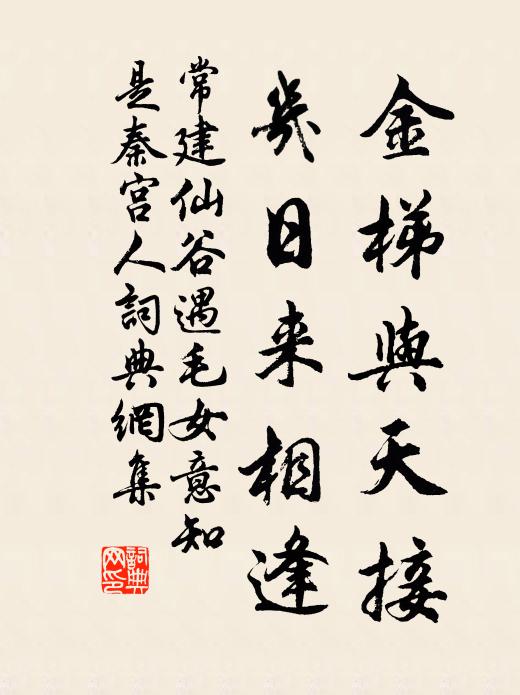 金梯與天接
幾日来相逢
常建仙谷遇毛女意知
是秦宮人詞典網集
詞典
网印